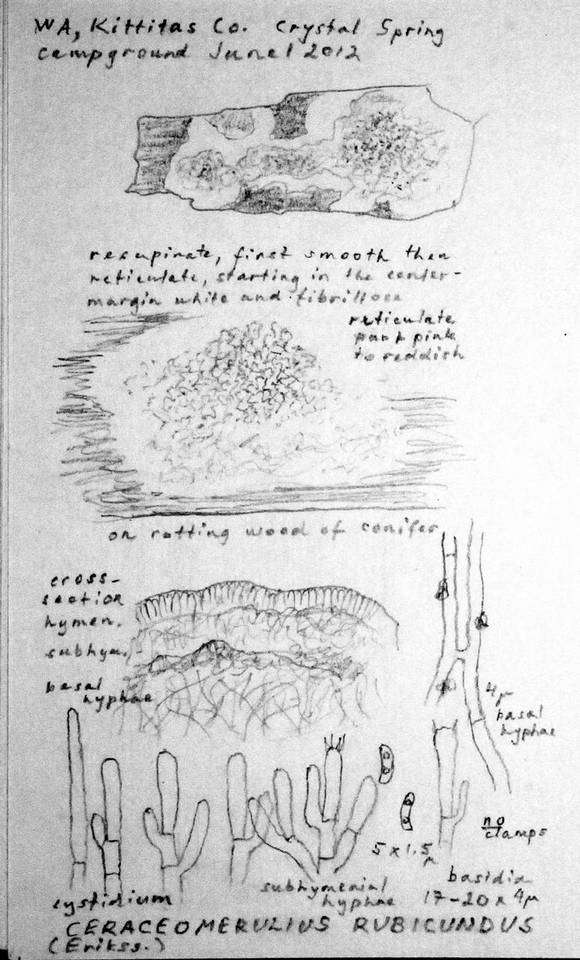 WA, Kittitas Co. Crystal Spring
campground June 1 2012
resupinate, first smooth then
reticulate, starting in the center-
margin white and fibrillose
reticulate
part pink
to reddish
on rotting wood of conifer
cross-
section
hymen.
subhym.
basal
hyphae
4µ
basal
hyphae
no
clamps
5 x 1.5
µ
cystidium
subhymenial
hyphae
basidia
17-20 x 4µ
CERACEOMERULIUS RUBICUNDUS
(Erikss.)